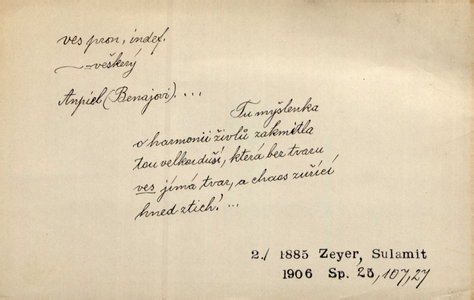 ves pron, indef.
—veškerý
Anpiel (Benajovi). ...
Tu myšlenka
o harmonii živlů zakmitla
tou velkou duší, která bez tvaru
ves jímá tvar, a chaos zuřící
hned ztich! ...
2./ 1885 Zeyer, Sulamit
1906 Sp. 25, 107, 27